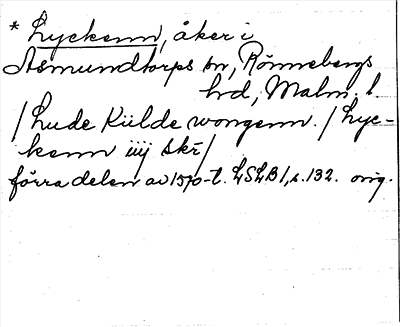 * Lyckenn, åker i
Asmundtorps sn, Rönnebergs
hd, Malm. l
/ Lude Kiilde wongenn. / Lyc-
kenn iiij skr̄ /
förra delen av 1570-t. LSLB 1, s. 132. orig.